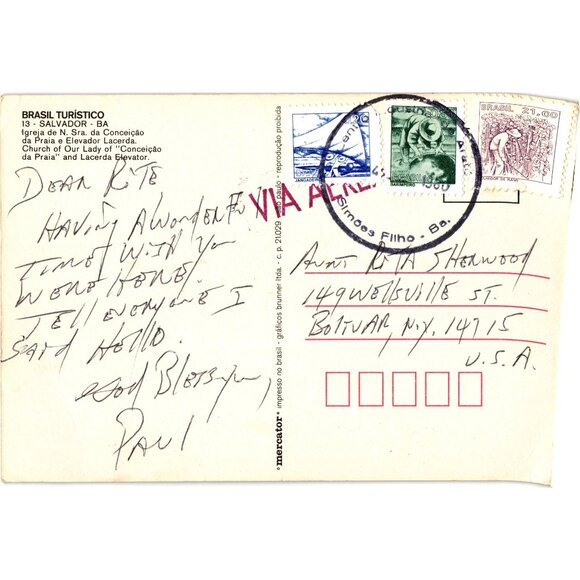 BRASIL TURÍSTICO
13 - SALVADOR - BA
Igreja de N. Sra. da Conceição
da Praia e Elevador Lacerda.
Church of Our Lady of "Conceição
da Praia" and Lacerda Elevator.
DEAR RITE
HAVING A WONDERFUL
TIME! WISH YOU
WERE HERE!
TELL EVERYONE I
SAID HELLO.
GOD BLESS YOU,
PAUL
mercator impresso no brasil - gráficos brunner ltda. - c. p. 21.029 paulo - reprodução proibida
VIA AÉREA
JANGADEIRO
BRASIL 21.00
1980
Simões Filho - Ba.
AUNT RITA SHERWOOD
149 WELLSVILLE ST.
BOLIVAR, N.Y. 14715
U.S.A.